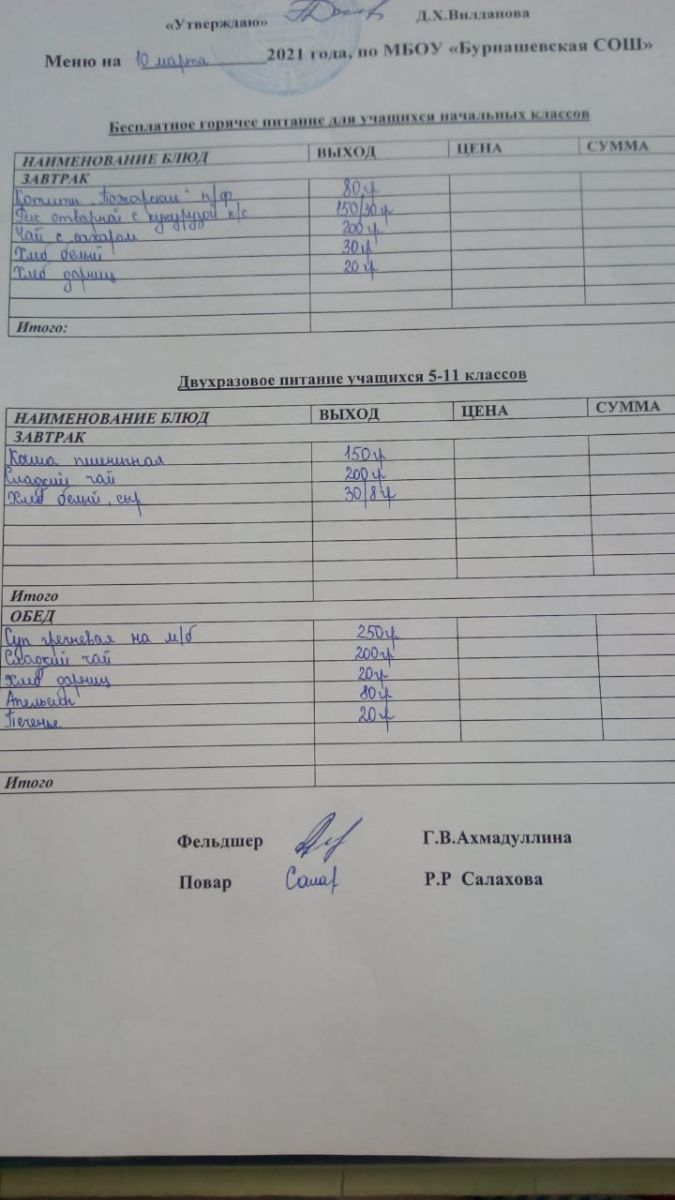 «Утверждаю» Д.Х.Вилданова
Меню на 10 марта 2021 года, по МБОУ «Бурнашевская СОШ»
Бесплатное горячее питание для учащихся начальных классов
НАИМЕНОВАНИЕ БЛЮД ВЫХОД ЦЕНА СУММА
ЗАВТРАК
Котлеты "Пожарские" п/ф 80гр
Рис отварной с кукурузой к/с 150/30гр
Чай с сахаром 200гр
Хлеб белый 30гр
Хлеб дарниц 20гр
Итого:
Двухразовое питание учащихся 5-11 классов
НАИМЕНОВАНИЕ БЛЮД ВЫХОД ЦЕНА СУММА
ЗАВТРАК
Каша пшеничная 150гр
Сладкий чай 200гр
Хлеб белый, сыр 30/8гр
Итого
ОБЕД
Суп гречневая на м/б 250гр
Сладкий чай 200гр
Хлеб дарниц 20гр
Апельсин 80гр
Печенье 20гр
Итого
Фельдшер Г.В.Ахмадуллина
Повар Салар Р.Р Салахова